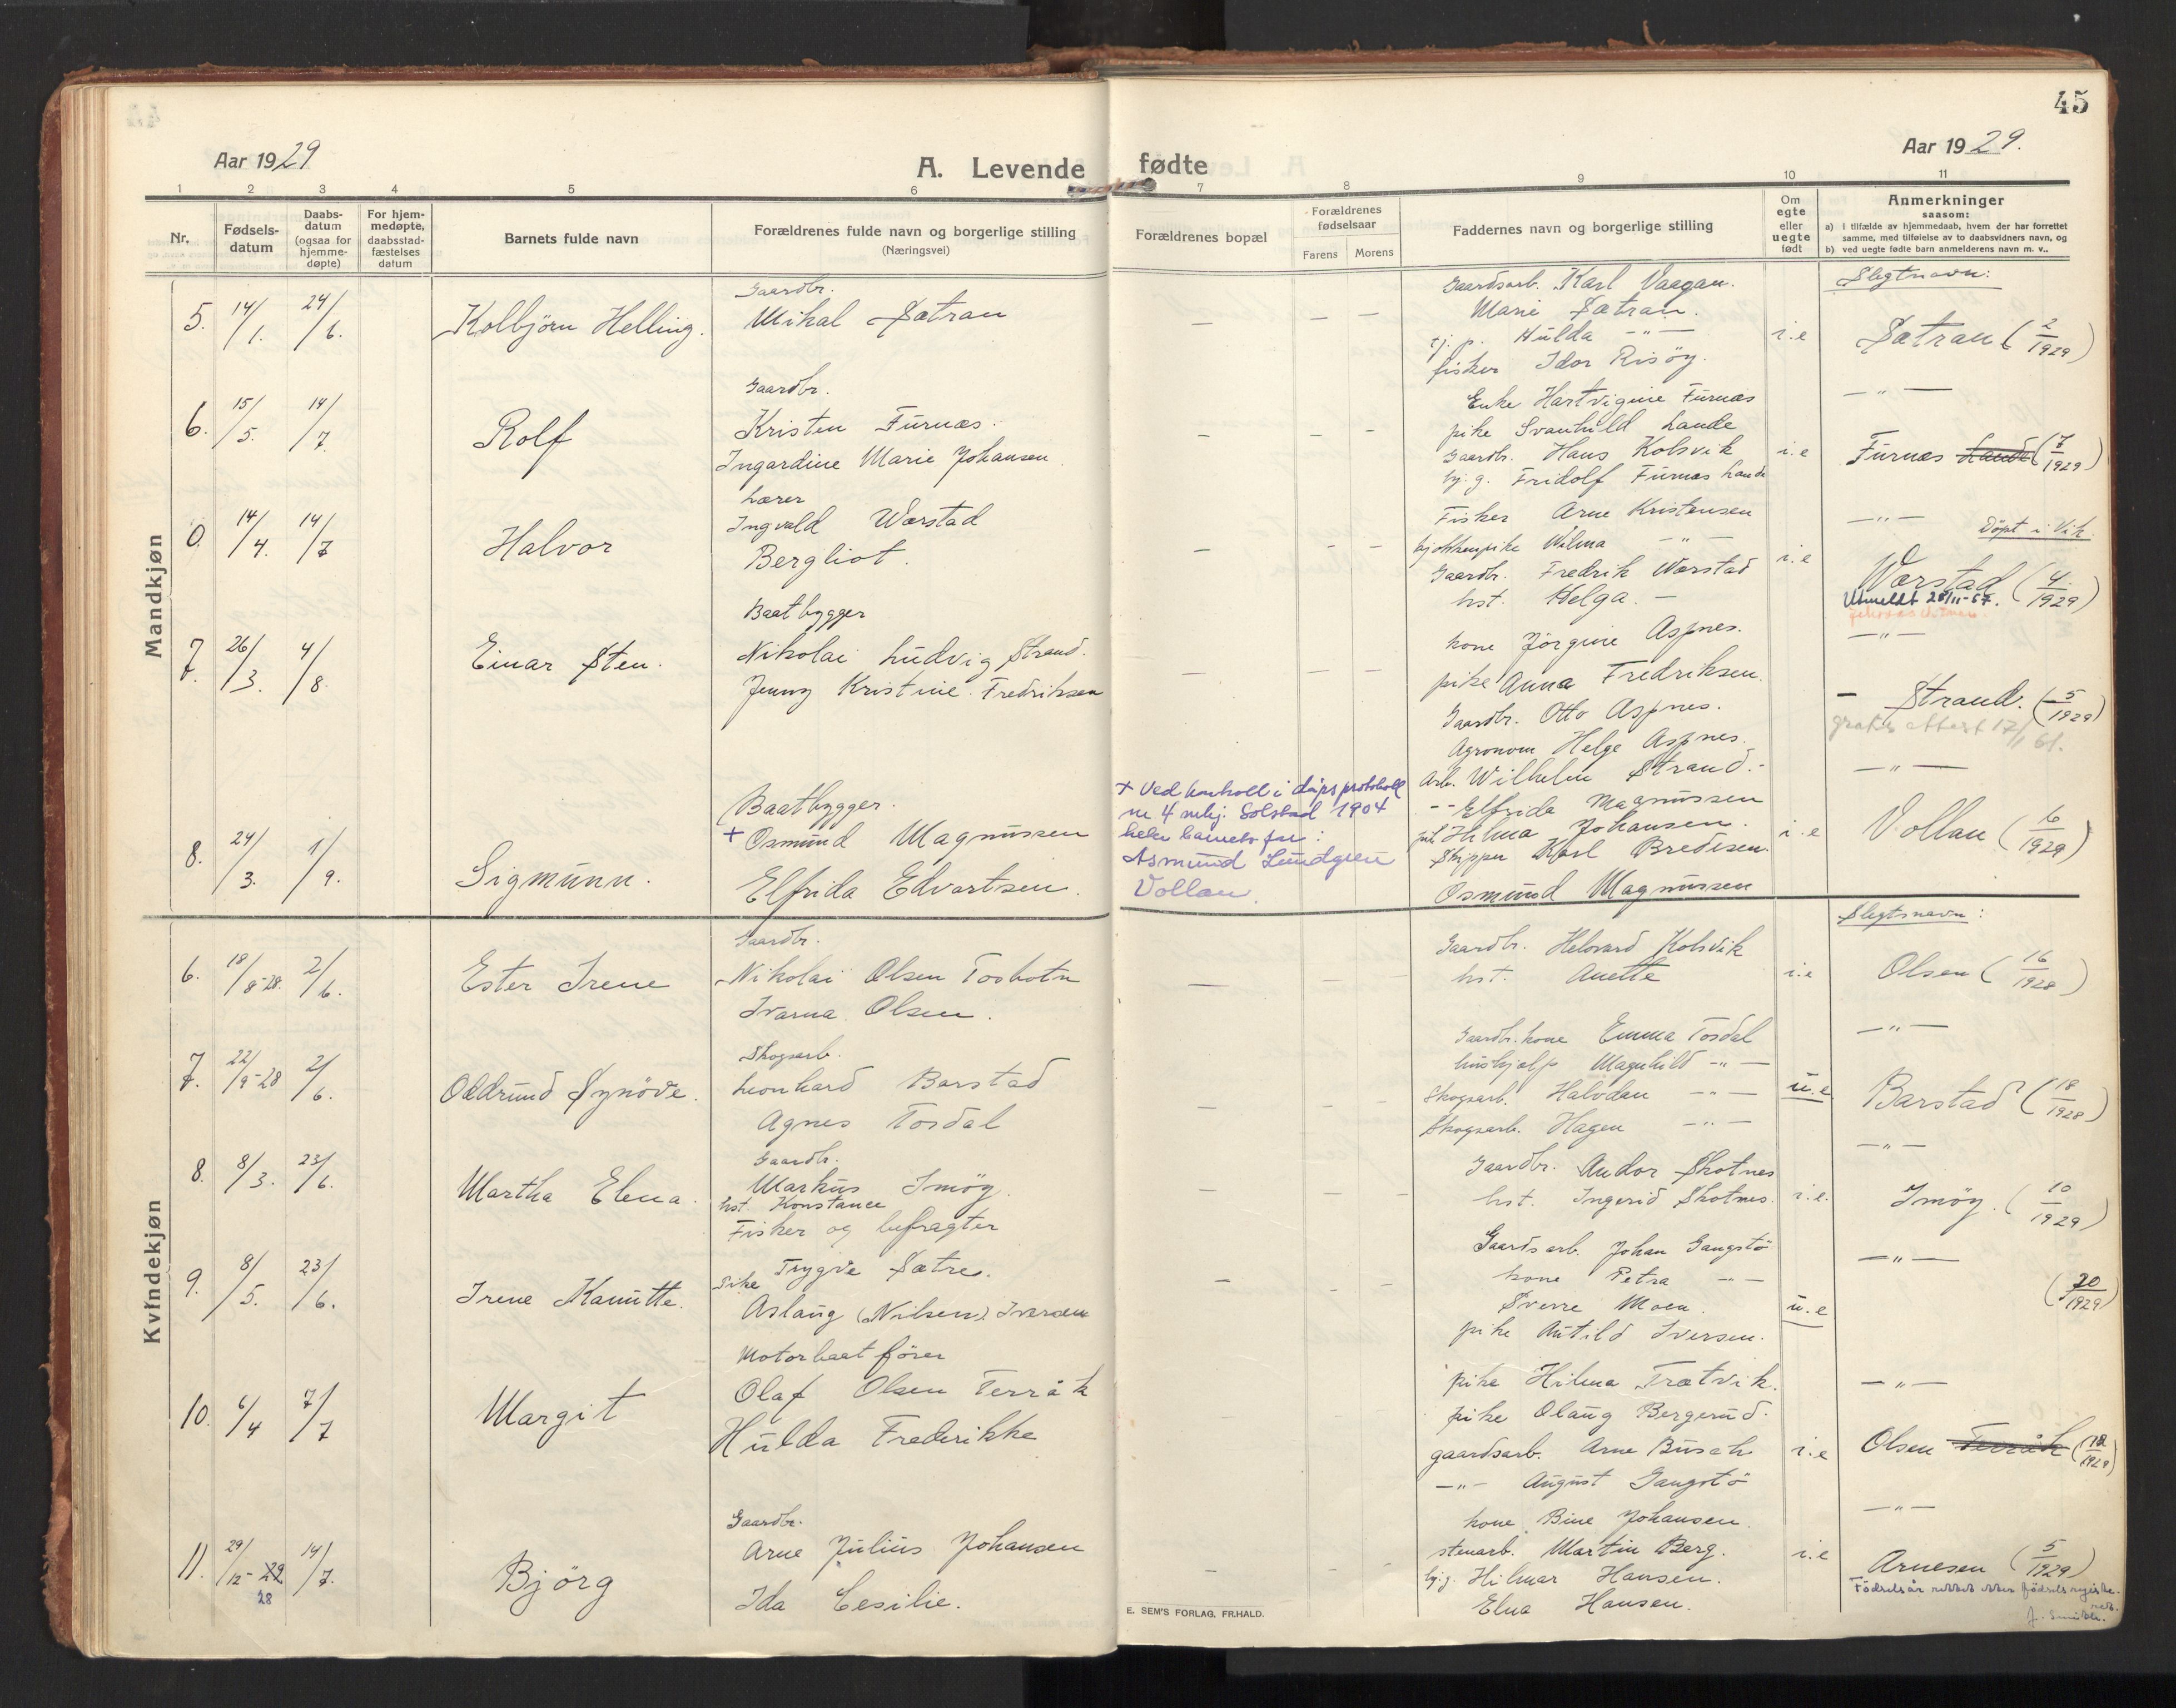 45
Aar 1929
A. Levende fødte
Aar 1929.
1 2 3 4 5 6 7 8 9 10 11
Nr.
Fødsels-
datum
Daabs-
datum
(ogsaa for
hjemme-
døpte)
For hjem-
medøpte,
daabsstad-
fæstelses
datum
Barnets fulde navn
Forældrenes fulde navn og borgerlige stilling
(Næringsvei)
Forældrenes bopæl
Forældrenes
fødselsaar
Farens Morens
Faddernes navn og borgerlige stilling
Om
egte
eller
uegte
født
Anmerkninger
saasom:
a) i tilfælde av hjemmedaab, hvem der har forrettet
samme, med tilføielse av to daabsvidners navn, og
b) ved uegte fødte barn anmelderens navn m. v..
Mandkjøn
5. 14/1. 24/6. Kolbjörn Helling.
Gaardbr.
Mikal Sætran
— — —
Gaardsarb. Karl Vaagan.
Marie Sætran.
tj. p. Hulda —"—
fisker Idor Risöy.
i.e
Slegtnavn:
Sætran (2/1929)
6. 15/5. 14/7. Rolf
Gaardbr.
Kristen Furnæs.
Ingardine Marie Johansen
— — —
Enke Hartvigine Furnæs
pike Svanhild Lande
Gaardbr. Hans Kolsvik
tj. g. Fridolf Furnæs Lande
i.e
—"—
Furnæs Lande (7/1929)
0. 14/4. 14/7 Halvor
Lærer
Ingvald Wærstad
Bergliot.
— — —
Fisker Arne Kristensen
kjøkkenpike Wilma —"—
Gaardbr. Fredrik Wærstad
hst. Helga. —
i.e
—"— Döpt i Vik
Wærstad (4/1929)
Utmeldt 28/11-57.
7. 26/3. 4/8. Einar Sten.
Baatbygger
Nikolai Ludvig Strand.
Jenny Kristine Fredriksen
— — —
kone Jörgine Aspnes.
pike Anna Fredriksen.
Gaardbr. Otto Aspnes.
Agronom Helge Aspnes.
—"—
— Strand. (5/1929)
gratis attest 17/11 61.
8. 24/3. 1/9. Sigmunn.
Baatbygger.
+ Osmund Magnussen
Elfrida Edvartsen.
+ Ved kontroll i dåpsprotokoll
nr 4 mkj. Solstad 1904
heter barnets far:
Asmund Lundgren
Vollan.
Arb. Wilhelm Strand.
-- Elfrida Magnussen
pike Hilma Johansen.
Skipper Karl Bredesen.
Osmund Magnussen
i.e
—"—
Vollan (16/1929)
Kvindekjøn
6. 18/8-28. 2/6. Ester Irene
Gaardbr.
Nikolai Olsen Tosbotn
Ivarna Olsen.
— —
Gaardbr. Helovard Kolsvik
hst. Anette
i.e
Slegtsnavn:
Olsen (16/1928)
7. 22/9-28 2/6. Oddrund Synöve.
Skogsarb.
Leonhard Barstad
Agnes Tosdal
— — —
Gaardbr. kone Emma Tosdal
hushjelp Magnhild —"—
Skogsarb. Halvdan —"—
Skogsarb. Hagen —"—
u.e
—"—
Barstad (18/1928)
8. 8/3. 23/6. Martha Elena.
Gaardbr.
Markus Imöy
hst. Konstance
— — —
Gaardbr. Andor Skotnes
hst. Ingerid Skotnes.
i.e.
—"—
Imöy. (10/1929)
9. 8/5. 23/6. Irene Kanutte.
Fisker og lefragter
Trygve Sætre.
Pike
Aslaug (Nilsen) Iversen
— —
Gaardsarb. Johan Gangstö
kone Petra —"—
Sverre Moen.
pike Antild Iversen.
u.e
—"—
(20/1929)
10. 6/4 7/7 Margit
Motorbaatfører
Olaf Olsen Terråk
Hulda Frederikke
pike Hilma Trætvik.
pike Olaug Bergerud.
gaardsarb. Arne Busch
—"— August Gangstö
i.e
—"—
Olsen Terråk (12/1929)
11. 29/12-29 28 14/7. Björg
Gaardbr.
Arne Julius Johansen
Ida Cesilie.
— —
kone Bine Johansen.
stenarb. Martin Berg.
tj.g. Hilmar Hansen.
Elna Hansen.
i.e
—"—
Arnesen (5/1929)
Födselsår rettet etter födselsregiste-
ret.
E. SEM'S FORLAG, FR.HALD.